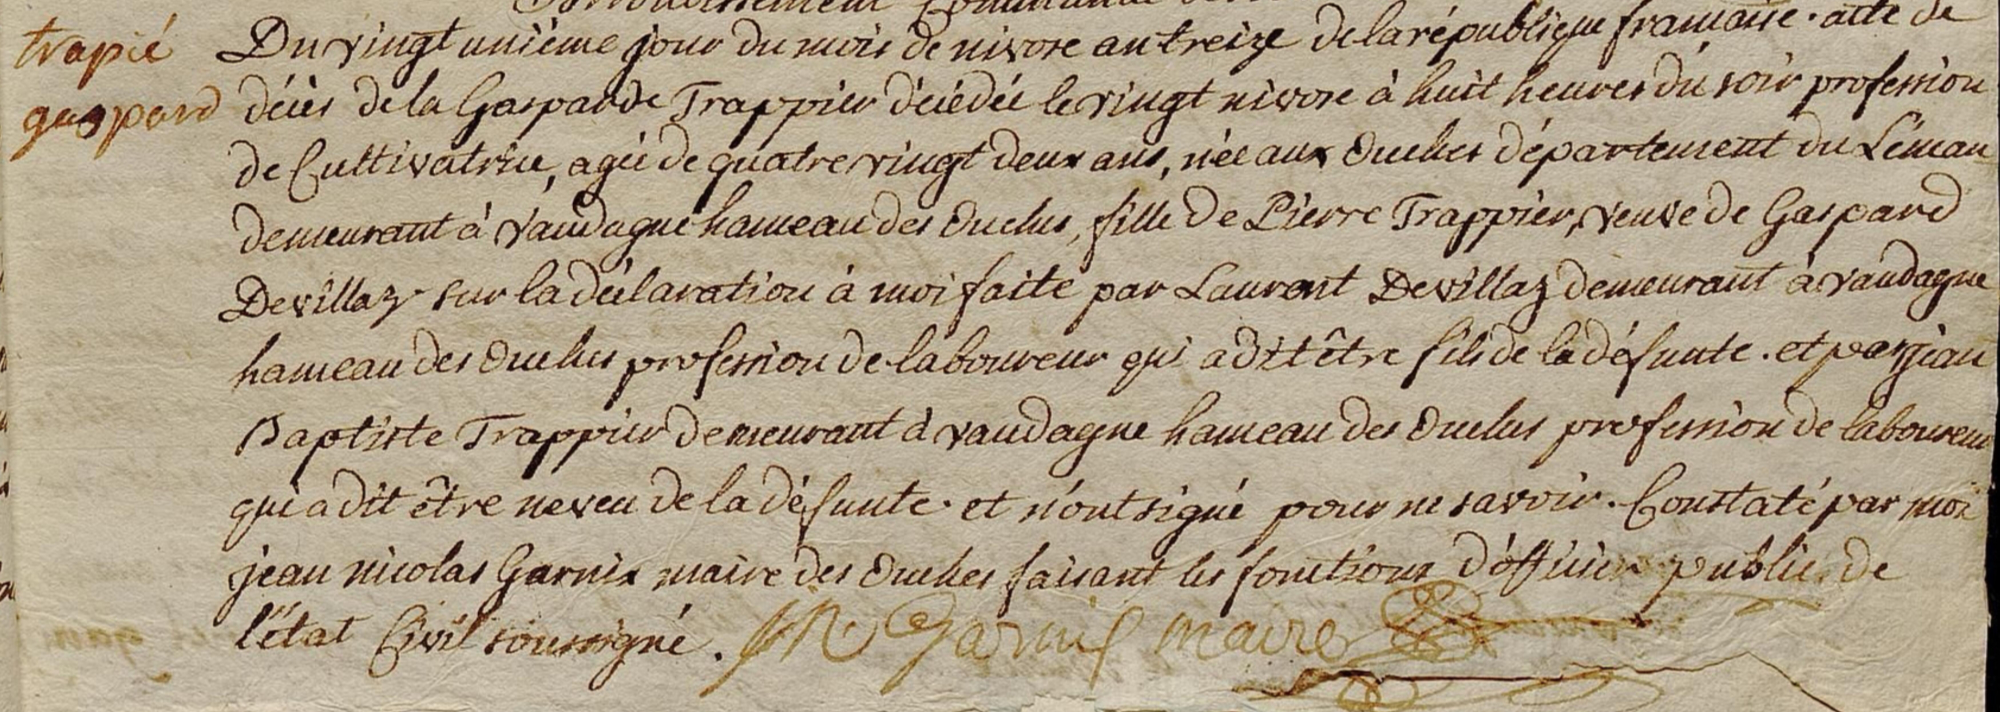 arrondissement Communal
trapié Du vingt unième jour du mois de nivose an treize de la république française. acte de
gaspard décès de la Gasparde Trappier décédée le vingt nivose à huit heures du soir profession
de Cultivatrice, agée de quatre vingt deux ans, née aux Ouches département du Léman
demeurant à Vaudagne hameau des Ouches, fille de Pierre Trappier, veuve de Gaspard
Devillaz sur la déclaration à moi faite par Laurent Devillaz demeurant à vaudagne
hameau des Ouches profession de laboureur qui a dit être fils de la défunte. et par jean
Baptiste Trappier demeurant à vaudagne hameau des Ouches profession de laboureur
qui a dit être neveu de la défunte. et n'ont signé pour ne savoir. Constaté par moi
jean nicolas Garnix maire des Ouches faisant les fonctions d'officier public de
l'état Civil soussigné. JN Garnix maire